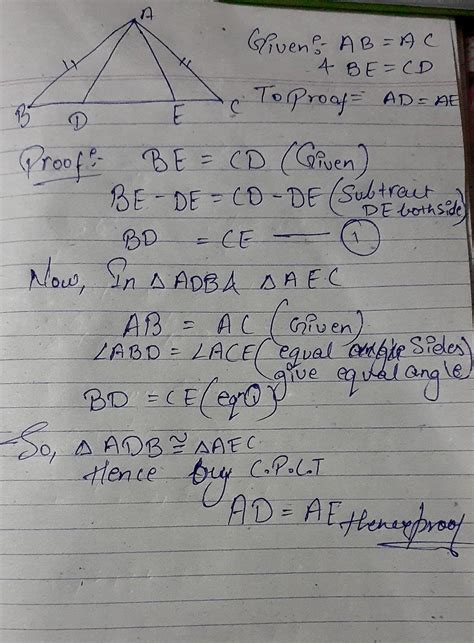 A
B D E C
Given:- AB = AC
& BE = CD
To Proof = AD = AE
Proof:- BE = CD (Given)
BE - DE = CD - DE (Subtract DE both side)
BD = CE —— ①
Now, In △ ADB & △ AEC
AB = AC (Given)
∠ABD = ∠ACE (equal Sides give equal angle)
BD = CE (eqn ①)
So, △ ADB ≅ △AEC
Hence by C.P.C.T
AD = AE Hence proof